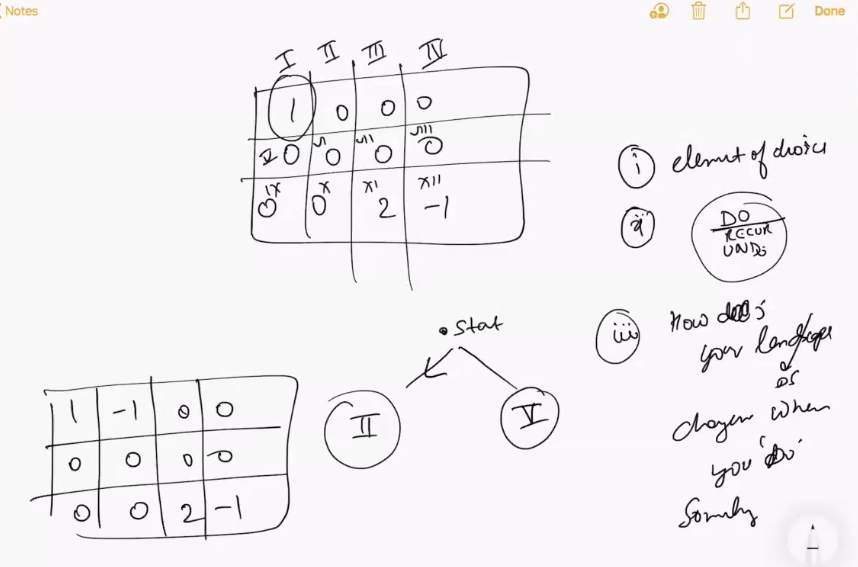 Notes
Done
I II III IV
1 0 0 0
V 0 VI 0 VII 0 VIII 0
IX 0 X 0 XI 2 XII -1
i element of choice
ii DO
RECUR
UNDO
iii How does
your landscape
chagen when
you 'Do'
Start
II V
1 -1 0 0
0 0 0 0
0 0 2 -1